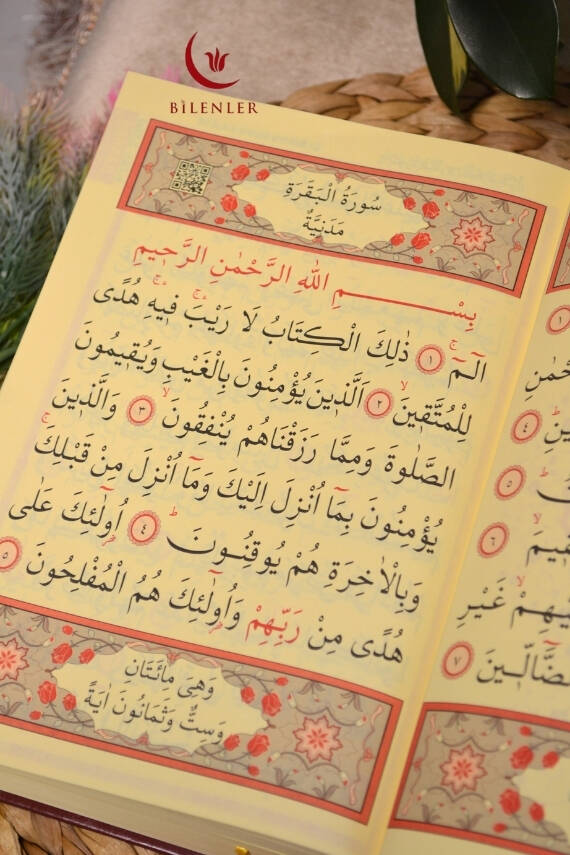 BİLENLER
سُورَةُ الْبَقَرَةِ
مَدَنِيَّةٌ
بِسْمِ اللّٰهِ الرَّحْمٰنِ الرَّحٖيمِ
الٓمٓ ۚ ﴿١﴾ ذٰلِكَ الْكِتَابُ لَا رَيْبَ ۚۛ فٖيهِ ۚۛ هُدًى
لِلْمُتَّقٖينَ ۙ ﴿٢﴾ اَلَّذٖينَ يُؤْمِنُونَ بِالْغَيْبِ وَيُقٖيمُونَ
الصَّلٰوةَ وَمِمَّا رَزَقْنَاهُمْ يُنْفِقُونَ ۙ ﴿٣﴾ وَالَّذٖينَ
يُؤْمِنُونَ بِمَٓا اُنْزِلَ اِلَيْكَ وَمَٓا اُنْزِلَ مِنْ قَبْلِكَ ۚ
وَبِالْاٰخِرَةِ هُمْ يُوقِنُونَ ؕ ﴿٤﴾ اُولٰٓئِكَ عَلٰى
هُدًى مِنْ رَبِّهِمْ وَاُولٰٓئِكَ هُمُ الْمُفْلِحُونَ ﴿٥﴾
وَهِىَ مِائَتَانِ
وَسِتٌّ وَثَمَانُونَ اٰيَةً
﴿١﴾
﴿٤﴾
﴿٥﴾
﴿٦﴾
غَيْرِ
﴿٧﴾